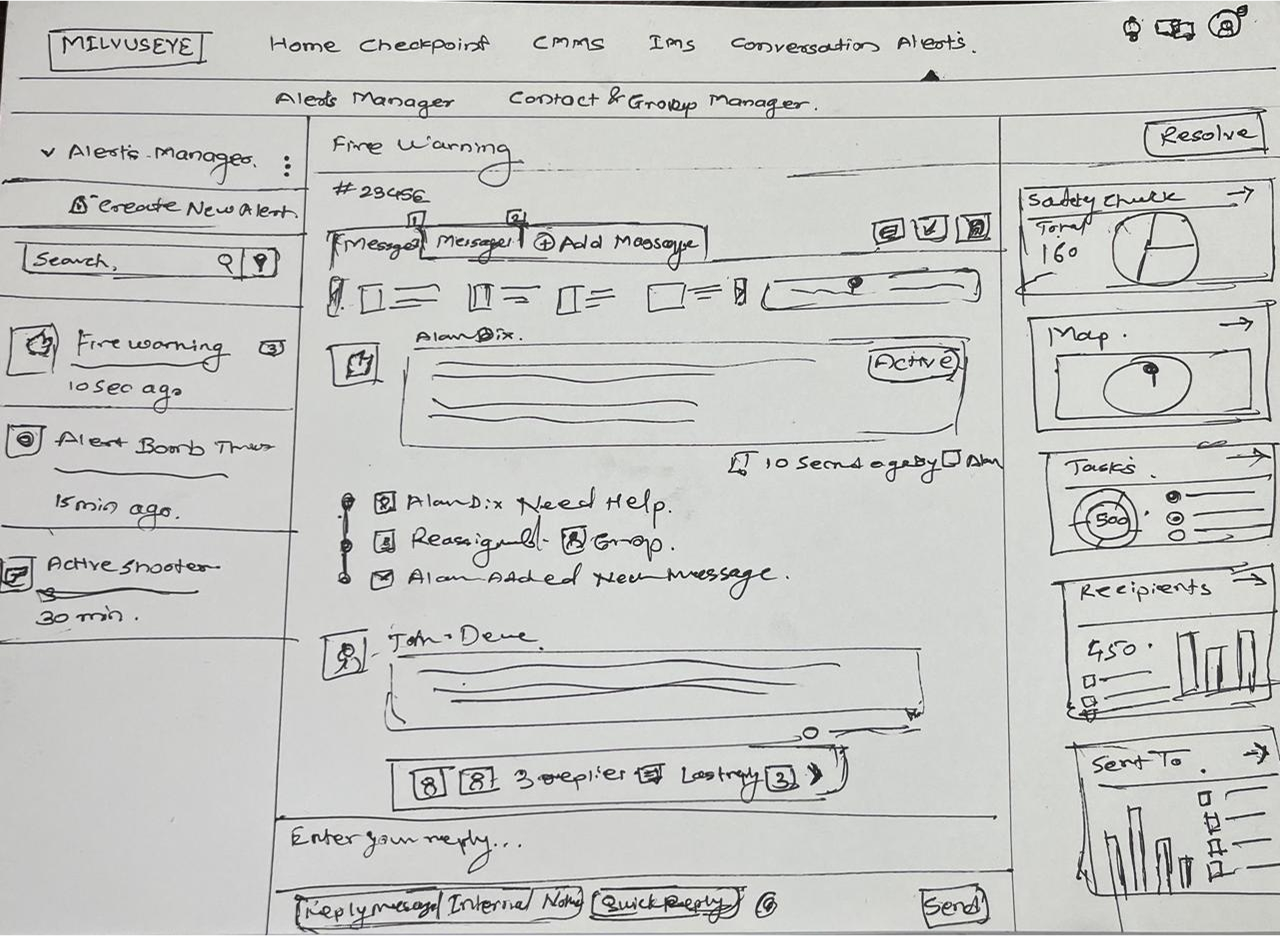 MILVUSEYE Home Checkpoint CMMS IMS Conversation Alerts.
Alerts Manager Contact & Group Manager.
Alerts Manager.
Create New Alert
Search,
Fire warning 3
10 sec ago
Alert Bomb
15 min ago.
Active Shooter
30 min.
Fire Warning
#23456
1 2
Message Message Add Message
Alan Dix.
Active
10 Second ago by Alan
Alan Dix Need Help.
Group.
Alan Added New Message.
3 replies Last reply 3
Enter your reply...
Reply message Internal Note Quick Reply Send
Resolve
Safety Check
Total
160
Map.
Tasks.
500
Recipients
450.
Sent To.